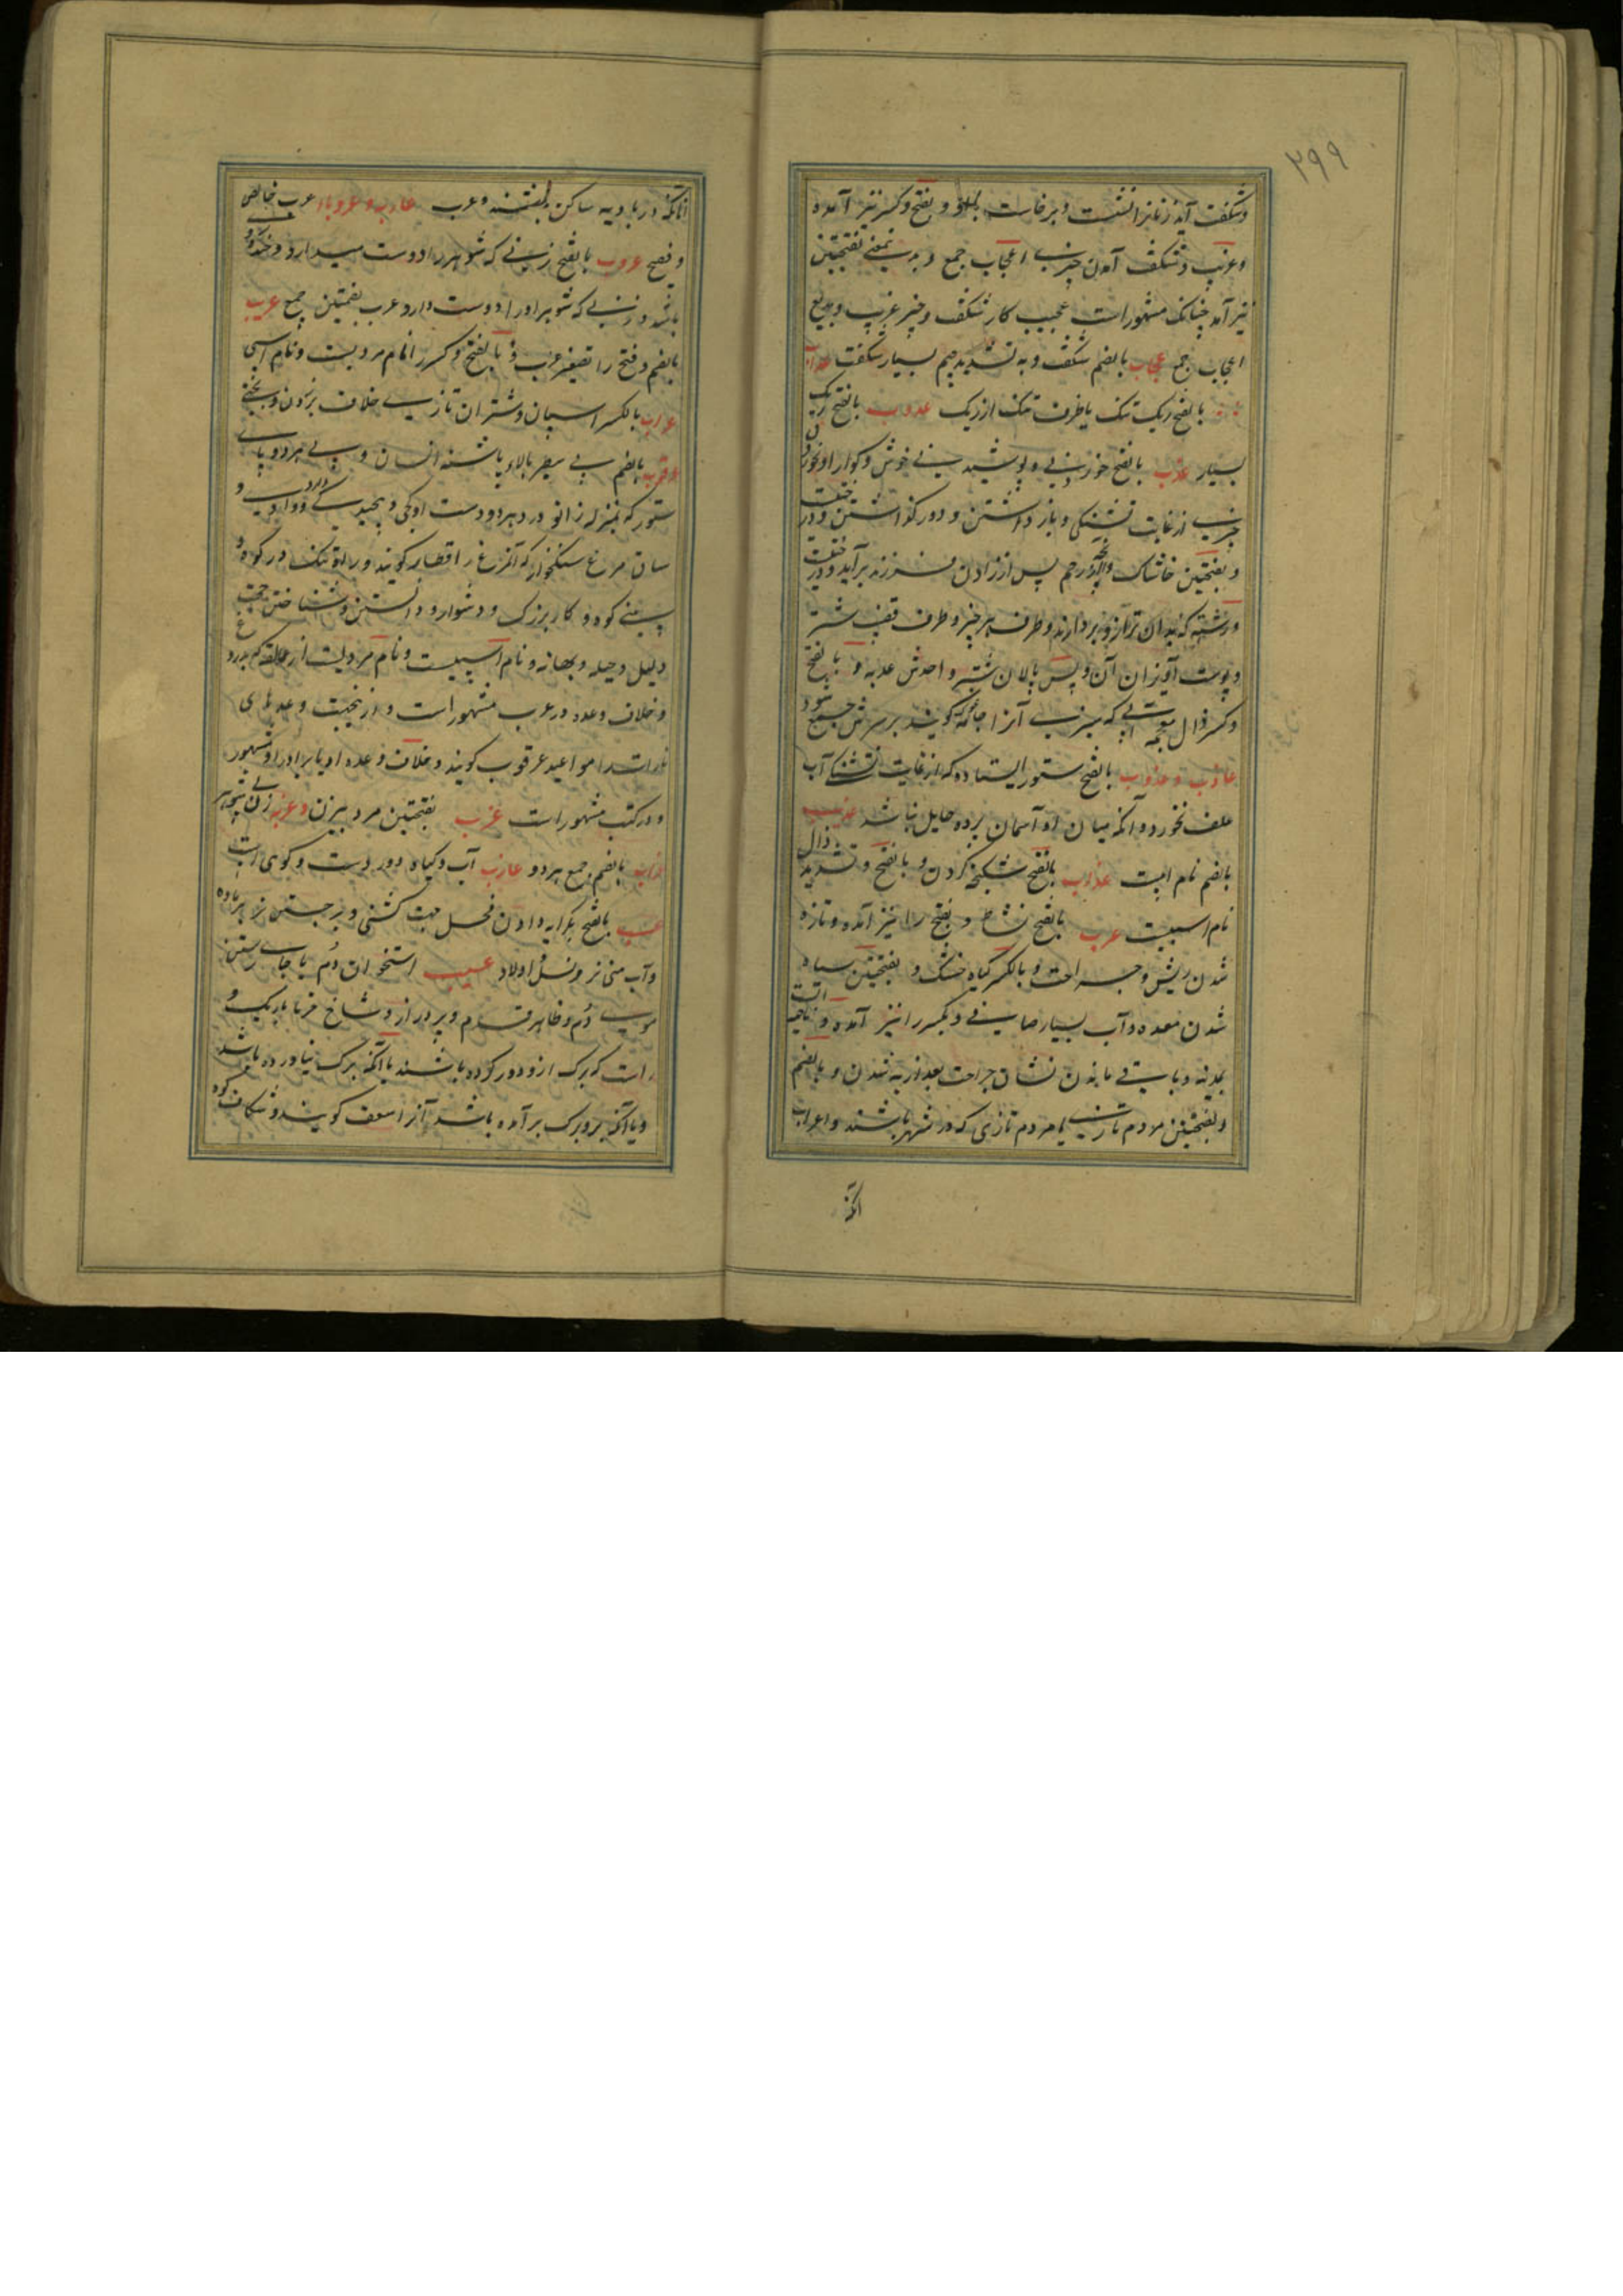 ۲۹۹
وشکفت آید زنانرا نشست و برخاست و بفتح و کسر نیز آمده
وغریب و شکفت آمدن چیزی اعجاب جمع و بدینمعنی بفتحتین
نیز آمده چنانکه مشهور است عجیب کار شکفت و چیز غریب و بدیع
اعجاب جمع عجاب بالضم شکفت و به تشدید جیم بسیار شکفت عداب
بالفتح ریک تنک یا طرف تنک از ریک عدوب بالفتح ریک
بسیار عذب بالفتح خوردنی و پوشیدنی خوش و کوارا و نخوردن
چیزی از غایت تشنکی و باز داشتن و دور کذاشتن و درخت
و بفتحتین خاشاک و آنچه از رحم پس از زادن فرزند برآید و درخت
و رشته که بدان ترازو بردارند و طرف هر چیز و طرف قضیب شتر
و پوست آویزان آن و پس پالان شتر واحدش عذبه و بالفتح
و کسر ذال معجمه آبی که سبزی آنرا جامه کویند بر سرش جمع شود
عاذب و عذوب بالفتح ستور ایستاده که از غایت تشنکی آب
علف نخورد و آنکه میان او و آسمان پرده حایل نباشد عذیب
بالضم نام آبیست عذاب بالفتح شکنجه کردن و بالفتح و تشدید ذال
نام اسبیست عرب بالفتح نشاط و بفتح را نیز آمده و تازه
شدن ریش و جراحت و بالکسر کیاه خشک و بفتحتین سیاه
شدن معده و آب بسیار صافی و بکسر را نیز آمده و ناحیه ایست
بمدینه و باقی ماندن نشان جراحت بعد از به شدن و بالضم
و بفتحتین مردم تازی یا مردم تازی که در شهر باشند و اعراب
آنکه
آنانکه در بادیه ساکن باشند و عرب عاربه و عروبا اعرب خالص
و فصیح عروب بالفتح زنی که شوهر را دوست میدارد و خنده رو
باشد و زنی که شوهر او را دوست دارد عرب بضمتین جمع عریب
بالضم و فتح را تصغیر عرب و بالفتح و کسر را نام مردیست و نام اسبی
عراب بالکسر اسبان و شتران تازی خلاف برذون و بختی
عرقوب بالضم پی سطبر بالای پاشنه انسان و پی هر دو پای
ستور که بمنزله زانو در هر دو دست او و کجی و پیچیدگی رود و وادی و
ساق مرغ سنکخوار که آنمرغ را قطا کویند و راه تنک در کوه و
بینی کوه و کار بزرک و دشوار و دانستن و شناختن حجت
دلیل و حیله و بهانه و نام اسبیست و نام مردیست از عمالقه که بدروغ
و خلاف وعده در عرب مشهور است و ازینجهت وعده های
ناراست را مواعید عرقوب کویند و خلاف وعده او با برادر او مشهور
و در کتب مشهور است عزب بفتحتین مرد بیزن و عزبه زن بی شوهر
عزاب بالضم جمع هر دو عازب آب و کیاه دور دست و کوهی است
عسب بالفتح بکرایه دادن فحل جهت کشنی و برجستن نر بر ماده
و آب منی نر و نسل و اولاد عسیب استخوان دم یا جای رستن
موی دم و ظاهر قدم و پر دراز و شاخ خرما باریک و
راست که برک ازو دور کرده باشند یا آنکه برک نیاورده باشد
و یا آنکه برو برک برآمده باشد آنرا سعف کویند و شکاف کوه